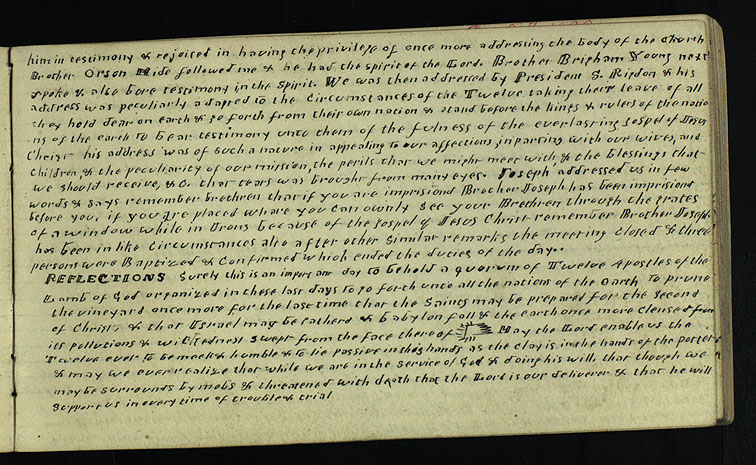 him in testimony & rejoiced in having the privilege of once more addressing the body of the church
Brother Orson Hide followed me & he had the spirit of the Lord. Brother Brigham Young next
spoke & also bore testimony in the spirit. We was then addressed by President S. Rigdon & his
address was peculiarly adapted to the circumstances of the Twelve taking their leave of all
they hold dear on earth & go forth from their own nation & stand before the kings & rulers of the natio
ns of the earth to bear testimony unto them of the fulness of the everlasting gospel of Jesus
Christ his address was of such a nature in appealing to our affections, in parting with our wives, and
Children, & the peculiarity of our mission, the perils that we might meet with, & the blessings that
we should receive, &c. that tears was brought from many eyes. Joseph addressed us in few
words & says remember brethren that if you are imprisiond Brother Joseph has been imprisiond
before you, if you are placed whare you can ownly see your Brethren through the grates
of a window while in Irons because of the gospel of Jesus Christ remember Brother Joseph
has been in like circumstances also after other similar remarks the meeting closed & three
persons were Baptized & Confirmed which ended the duties of the day..
REFLECTIONS Surely this is an important day to behold a quorum of Twelve Apostles of the
Lamb of God organized in these last days to go forth unto all the nations of the Earth To prune
the vineyard once more for the last time that the Saints may be prepared for the Second
of Christ, & that Israel may be gatherd & babylon fall & the earth once more clensed from
its pollutions & wickedness swept from the face thereof May the Lord enable us the
Twelve ever to be meek & humble & to lie passive in his hands as the clay is in the hands of the potter
& may we ever realize that while we are in the service of God & doing his will that though we
may be surrounds by mobs & threatened with death that the Lord is our deliverer & that he will
support us in every time of trouble & trial